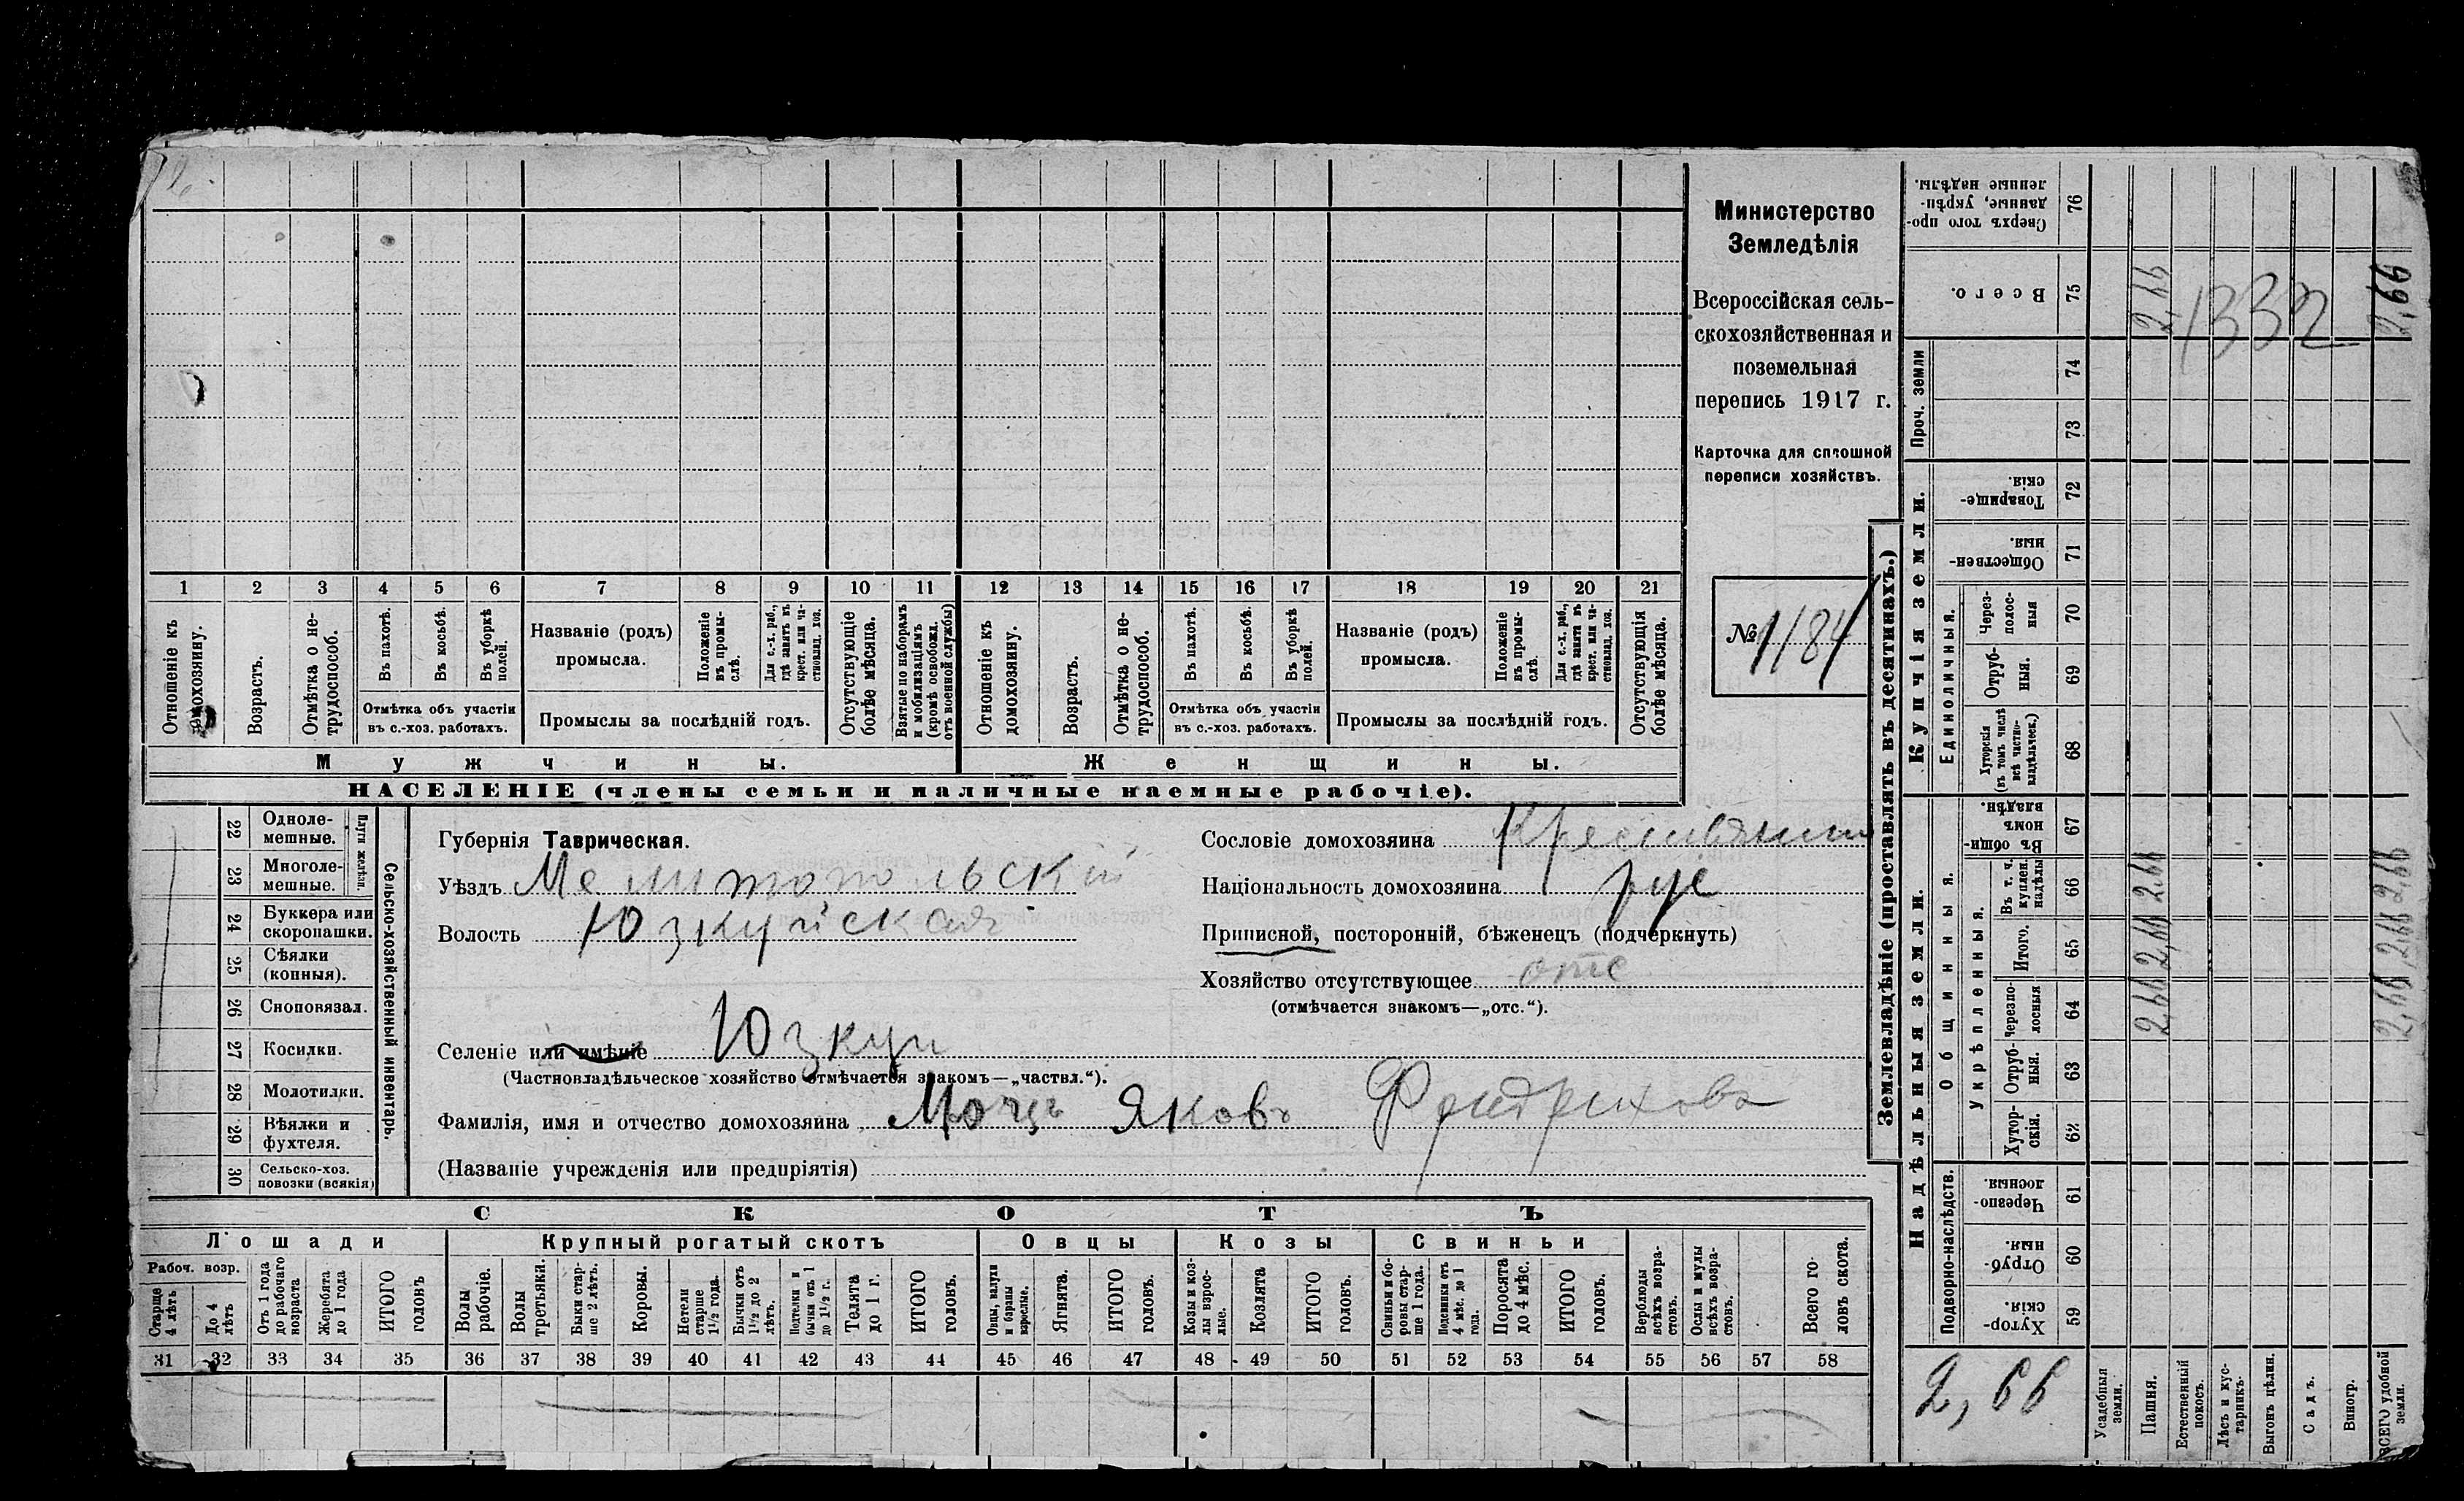 Министерство
Земледѣлія
Всероссійская сель-
скохозяйственная и
поземельная
перепись 1917 г.
Карточка для сплошной
переписи хозяйствъ.
№ 1184
1 2 3 4 5 6 7 8 9 10 11 12 13 14 15 16 17 18 19 20 21
Отношеніе къ домохозяину.
Возрастъ.
Отмѣтка о не-
трудоспособ.
Въ пахотѣ.
Въ косьбѣ.
Въ уборкѣ
полей.
Отмѣтка объ участіи
въ с.-хоз. работахъ.
Названіе (родъ)
промысла.
Положеніе
въ промы-
слѣ.
Для с.-х. раб.,
гдѣ занятъ въ
крест. или ча-
стновлад. хоз.
Промыслы за послѣдній годъ.
Отсутствующіе
болѣе мѣсяца.
Взятые по наборамъ
и мобилизаціямъ
(кромѣ освобожд.
отъ военной службы)
Отношеніе къ
домохозяину.
Возрастъ.
Отмѣтка о не-
трудоспособ.
Въ пахотѣ.
Въ косьбѣ.
Въ уборкѣ
полей.
Отмѣтка объ участіи
въ с.-хоз. работахъ.
Названіе (родъ)
промысла.
Положеніе
въ промы-
слѣ.
Для с.-х. раб.,
гдѣ занята въ
крест. или ча-
стновлад. хоз.
Промыслы за послѣдній годъ.
Отсутствующія
болѣе мѣсяца.
Мужчины.
Женщины.
НАСЕЛЕНІЕ (члены семьи и наличные наемные рабочіе).
22 Однолe-
мешные.
23 Многоле-
мешные.
Плуги желѣзн.
24 Буккера или
скоропашки.
25 Сѣялки
(конныя).
26 Сноповязал.
27 Косилки.
28 Молотилки.
29 Вѣялки и
фухтеля.
30 Сельско-хоз.
повозки (всякія)
Сельско-хозяйственный инвентарь.
Губернія Таврическая.
Уѣздъ Мелитопольскій
Волость Юзкуйская
Сословіе домохозяина Крестьянин
Національность домохозяина рус
Приписной, посторонній, бѣженецъ (подчеркнуть)
Хозяйство отсутствующее отс
(отмѣчается знакомъ—„отс.“).
Селеніе или имѣніе Юзкуи
(Частновладѣльческое хозяйство отмѣчается знакомъ—„частвл.“).
Фамилія, имя и отчество домохозяина Моцъ Яковъ
(Названіе учрежденія или предпріятія)
СКОТЪ
Лошади
Крупный рогатый скотъ
Овцы
Козы
Свиньи
Рабоч. возр.
Старше
4 лѣтъ
До 4
лѣтъ
Отъ 1 года
до рабочаго
возраста
Жеребята
до 1 года
ИТОГО
головъ
Волы
рабочіе.
Волы
третьяки.
Быки стар-
ше 2 лѣтъ.
Коровы.
Нетели
старше
1½ года.
Бычки отъ
1½ до 2
лѣтъ.
Подтелки и
бычки отъ 1
до 1½ г.
Телята
до 1 г.
ИТОГО
головъ.
Овцы, валухи
и бараны
взрослые.
Ягнята.
ИТОГО
головъ.
Козы и коз-
лы взрос-
лые.
Козлята
ИТОГО
головъ.
Свиньи и бо-
ровы стар-
ше 1 года.
Подсвинки отъ
4 мѣс. до 1
года.
Поросята
до 4 мѣс.
ИТОГО
головъ.
Верблюды
всѣхъ возра-
стовъ.
Ослы и мулы
всѣхъ возра-
стовъ.
Всего го-
ловъ скота.
31 32 33 34 35 36 37 38 39 40 41 42 43 44 45 46 47 48 49 50 51 52 53 54 55 56 57 58
Землевладѣніе (проставлять въ десятинахъ.)
Надѣльныя земли.
Купчія земли.
Проч. земли
Подворно-наслѣдств.
Общинныя.
Укрѣпленныя.
Единоличныя.
Хутор-
скія. 59
Отруб-
ныя. 60
Черезпо-
лосныя. 61
Хутор-
скія. 62
Отруб-
ныя. 63
Черезпо-
лосныя 64
Итого. 65
Въ т. ч.
куплен.
надѣлы 66
Въ общин-
номъ
владѣн. 67
Хуторскія
(въ томъ числѣ
всѣ частно-
владѣльческ.) 68
Отруб-
ныя. 69
Через-
полос-
ныя 70
Обществен-
ныя. 71
Товарище-
скія. 72
73
74
Всего. 75
Сверхъ того про-
данные, укрѣп-
ленные надѣлы. 76
Усадебныя
земли.
Пашня. 2,66 2,66 2,66 2,66
Естественный
покосъ.
Лѣсъ и кус-
тарникъ.
Выгонъ цѣлин.
Садъ.
Виногр.
ВСЕГО удобной
земли. 2,66 2,66 2,66 2,66
1332
2,66